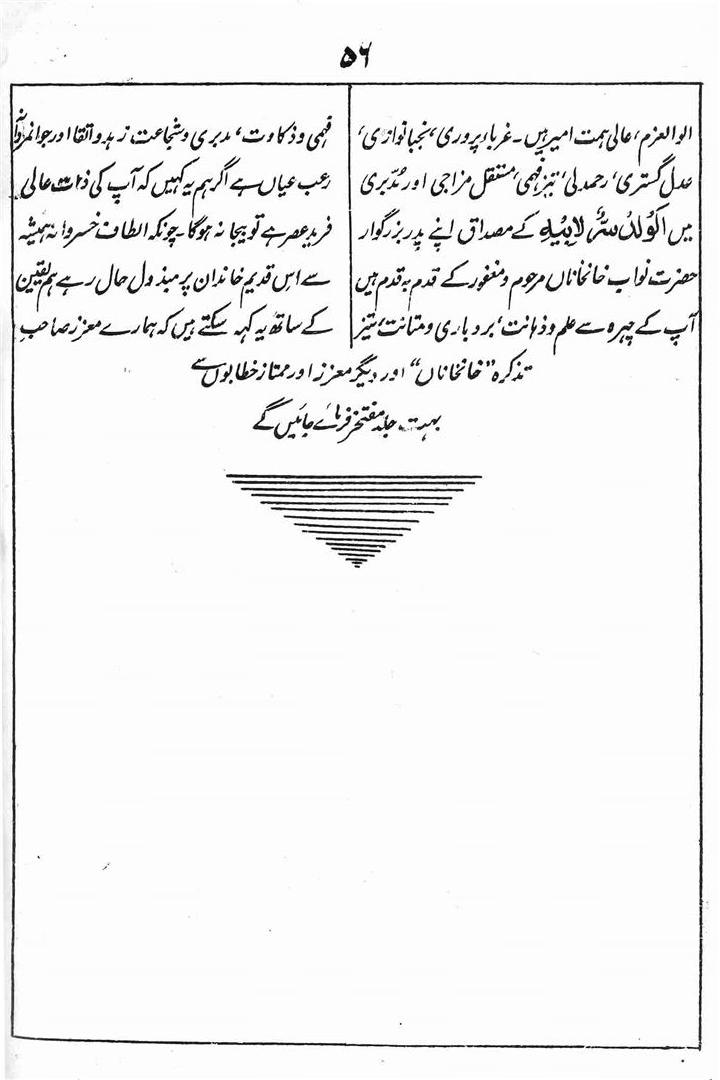 ۵۶
الوالعزم، عالی ہمت امیر ہیں۔ غرباء پروری، نجبا نوازی،
عدل گستری، رحمدلی، تیز فہمی، مستقل مزاجی اور مُدبّری
میں اَلْوَلَدُ سِرٌّ لِاَبِیْہِ کے مصداق اپنے پدر بزرگوار
حضرت نواب خانخاناں مرحوم و مغفور کے قدم بہ قدم ہیں
آپ کے چہرہ سے علم و ذہانت، بردباری و متانت، تیز
فہمی و ذکاوت، مدبری و شجاعت زہد و اتقا اور جوانمردانہ
رعب عیاں ہے اگر ہم یہ کہیں کہ آپ کی ذات عالی
فرید عصر ہے تو بیجا نہ ہوگا۔ چونکہ الطاف خسروانہ ہمیشہ
سے اس قدیم خاندان پر مبذول حال رہے ہم یقین
کے ساتھ یہ کہہ سکتے ہیں کہ ہمارے معزز صاحبِ
تذکرہ "خانخاناں" اور دیگر معزز اور ممتاز خطابوں سے
بہت جلد مفتخر فرمائے جائیں گے